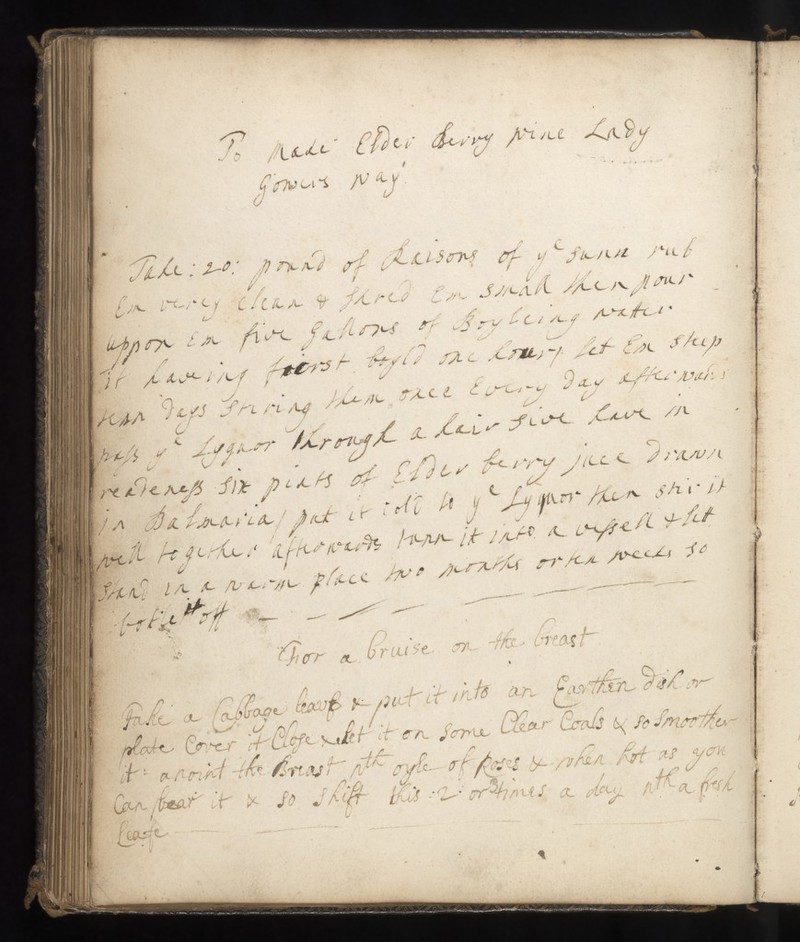 To Make Elder Berry wine Lady
Gowers way
Take : 20 : pound of Raisons of ye sunn rub
Em verey clean & shred Em small then pour
uppon Em five Gallons of Boyleing watter
it haveing first boyld one hour, let Em steep
tenn days stiring them once Every day afterwards
pass ye Lyquor through a hair sive have in
readeness six pints of Elder berry juce drawn
in Balmaria, put it cold to ye Lyquor then stir it
well together afterwards tunn it into a vessell & let
stand in a warm place two months or ten weeks so
botle it off
For a bruise on the breast
Take a Cabbage leafe & put it into an Earthen dish or
plate Cover it Close & let it on some Clear Coals & so smoother
it : anoint the Breast wth oyle of Roses & when hot as you
Can bear it & so shift this : 2 : or 3 times a day wth a fresh
Leafe